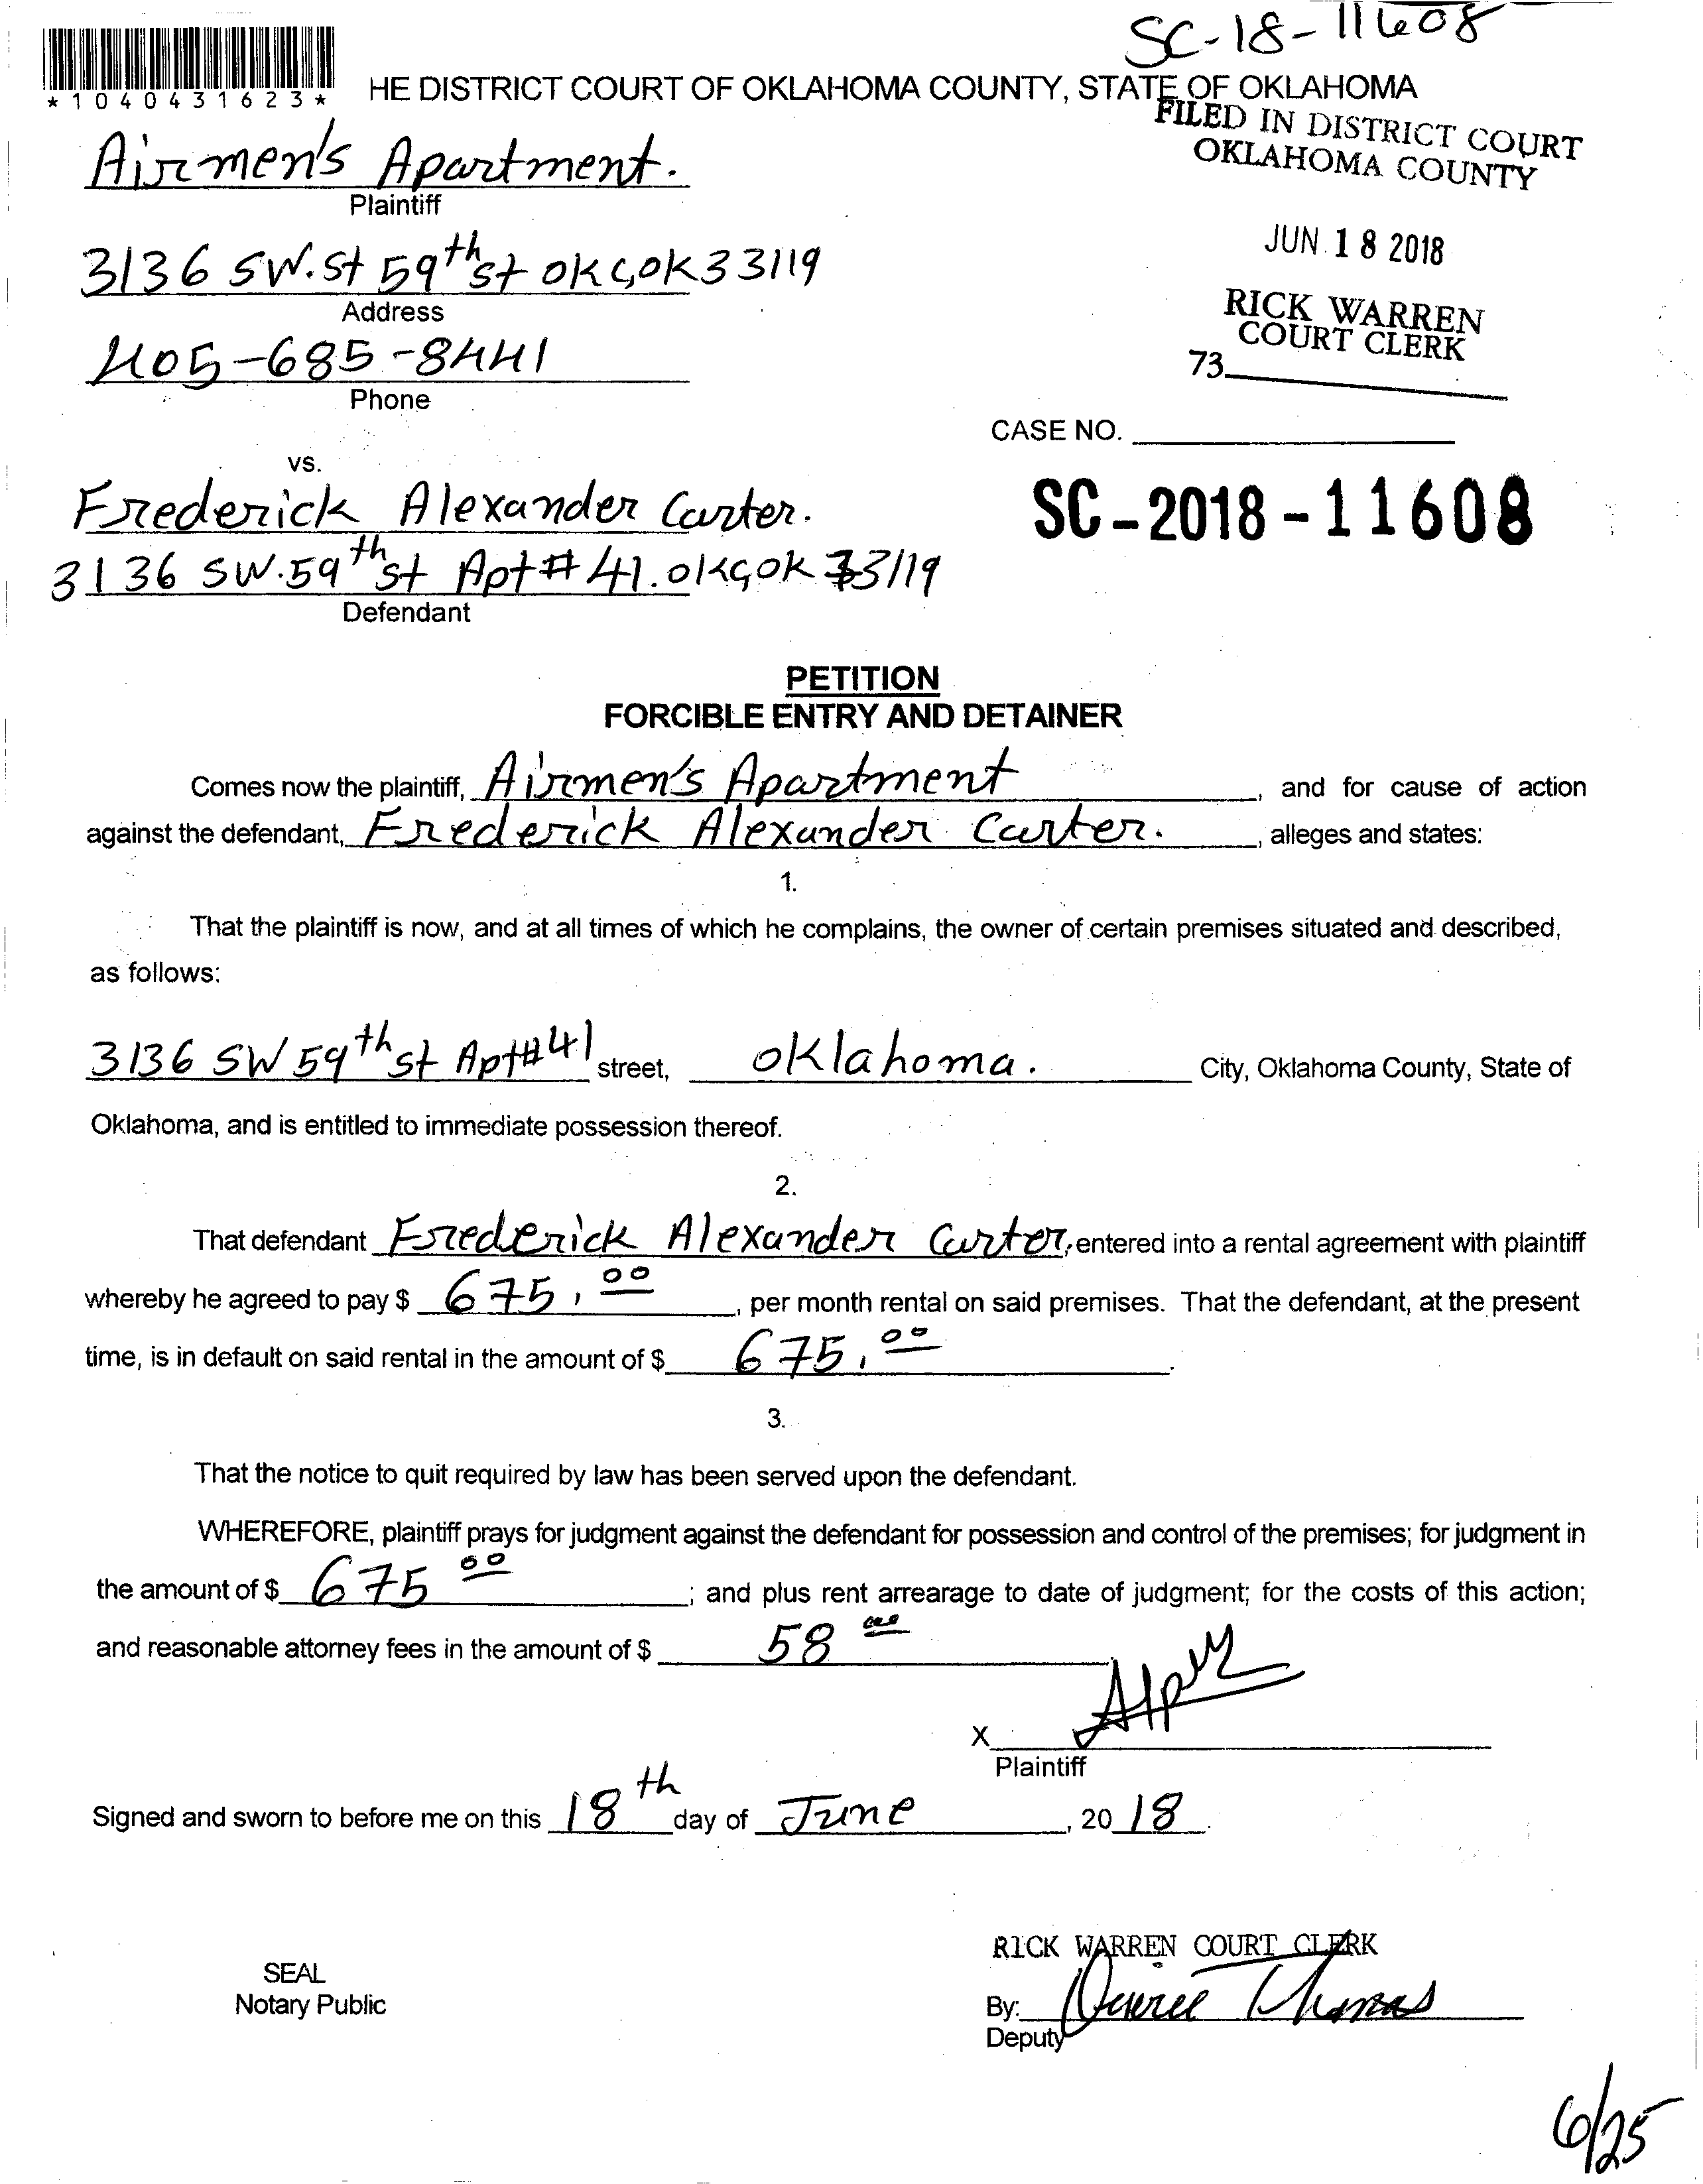 SC-18-11608
*1040431623*
HE DISTRICT COURT OF OKLAHOMA COUNTY, STATE OF OKLAHOMA
FILED IN DISTRICT COURT
OKLAHOMA COUNTY
Airmen's Apartment.
Plaintiff
3136 SW. St 59th st OKC, OK 33119
Address
JUN 18 2018
RICK WARREN
COURT CLERK
73
405-685-8441
Phone
CASE NO.
vs.
Frederick Alexander Carter.
SC-2018-11608
3136 SW. 59th st Apt# 41. OKC, OK 73119
Defendant
PETITION
FORCIBLE ENTRY AND DETAINER
Comes now the plaintiff, Airmen's Apartment, and for cause of action
against the defendant, Frederick Alexander Carter., alleges and states:
1.
That the plaintiff is now, and at all times of which he complains, the owner of certain premises situated and described,
as follows:
3136 SW 59th st Apt#41 street, oklahoma. City, Oklahoma County, State of
Oklahoma, and is entitled to immediate possession thereof.
2.
That defendant Frederick Alexander Carter, entered into a rental agreement with plaintiff
whereby he agreed to pay $ 675.00, per month rental on said premises. That the defendant, at the present
time, is in default on said rental in the amount of $ 675.00.
3.
That the notice to quit required by law has been served upon the defendant.
WHEREFORE, plaintiff prays for judgment against the defendant for possession and control of the premises; for judgment in
the amount of $ 675 00; and plus rent arrearage to date of judgment; for the costs of this action;
and reasonable attorney fees in the amount of $ 58 00.
X
Plaintiff
Signed and sworn to before me on this 18th day of June, 20 18.
RICK WARREN COURT CLERK
SEAL
Notary Public
By: Thomas
Deputy
6/25